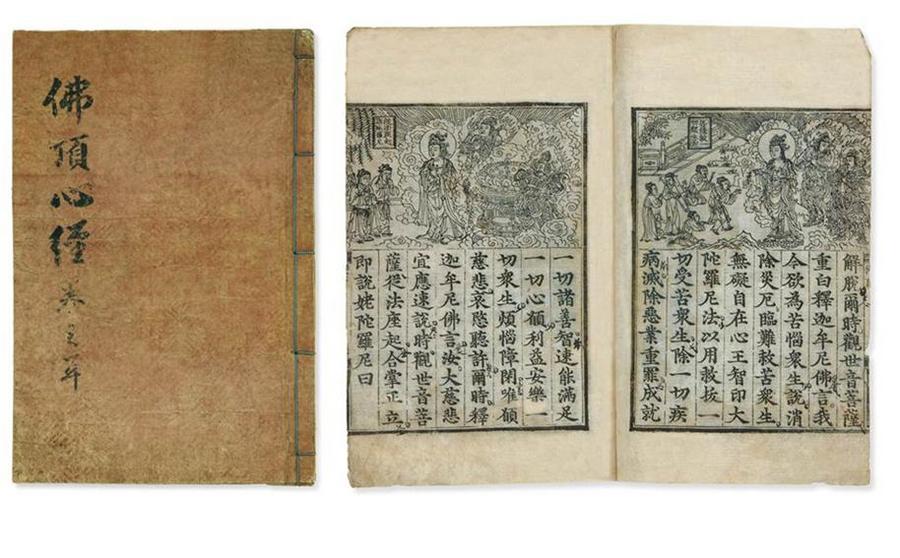 佛頂心經
解脫爾時觀世音菩薩
重白釋迦牟尼佛言我
今欲為苦惱衆生說消
除災厄臨難救苦衆生
無礙自在心王智印大
陀羅尼法以用救拔一
切受苦衆生除一切疾
病滅除惡業重罪成就
一切諸善智速能滿足
一切心願利益安樂一
切衆生煩惱障閉唯願
慈悲哀愍聽許爾時釋
迦牟尼佛言汝大慈悲
宜應速說時觀世音菩
薩從法座起合掌正立
即說姥陀羅尼曰